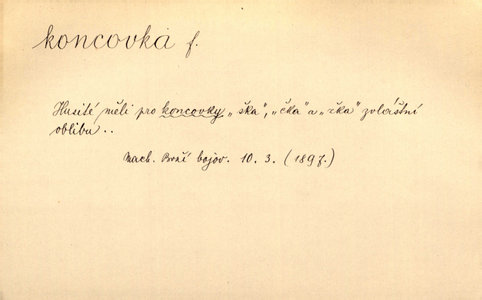 koncovka f.
Husité měli pro koncovky „ska", „čka" a „žka" zvláštní
oblibu..
Mach. Prví bojov. 10. 3. (1897.)